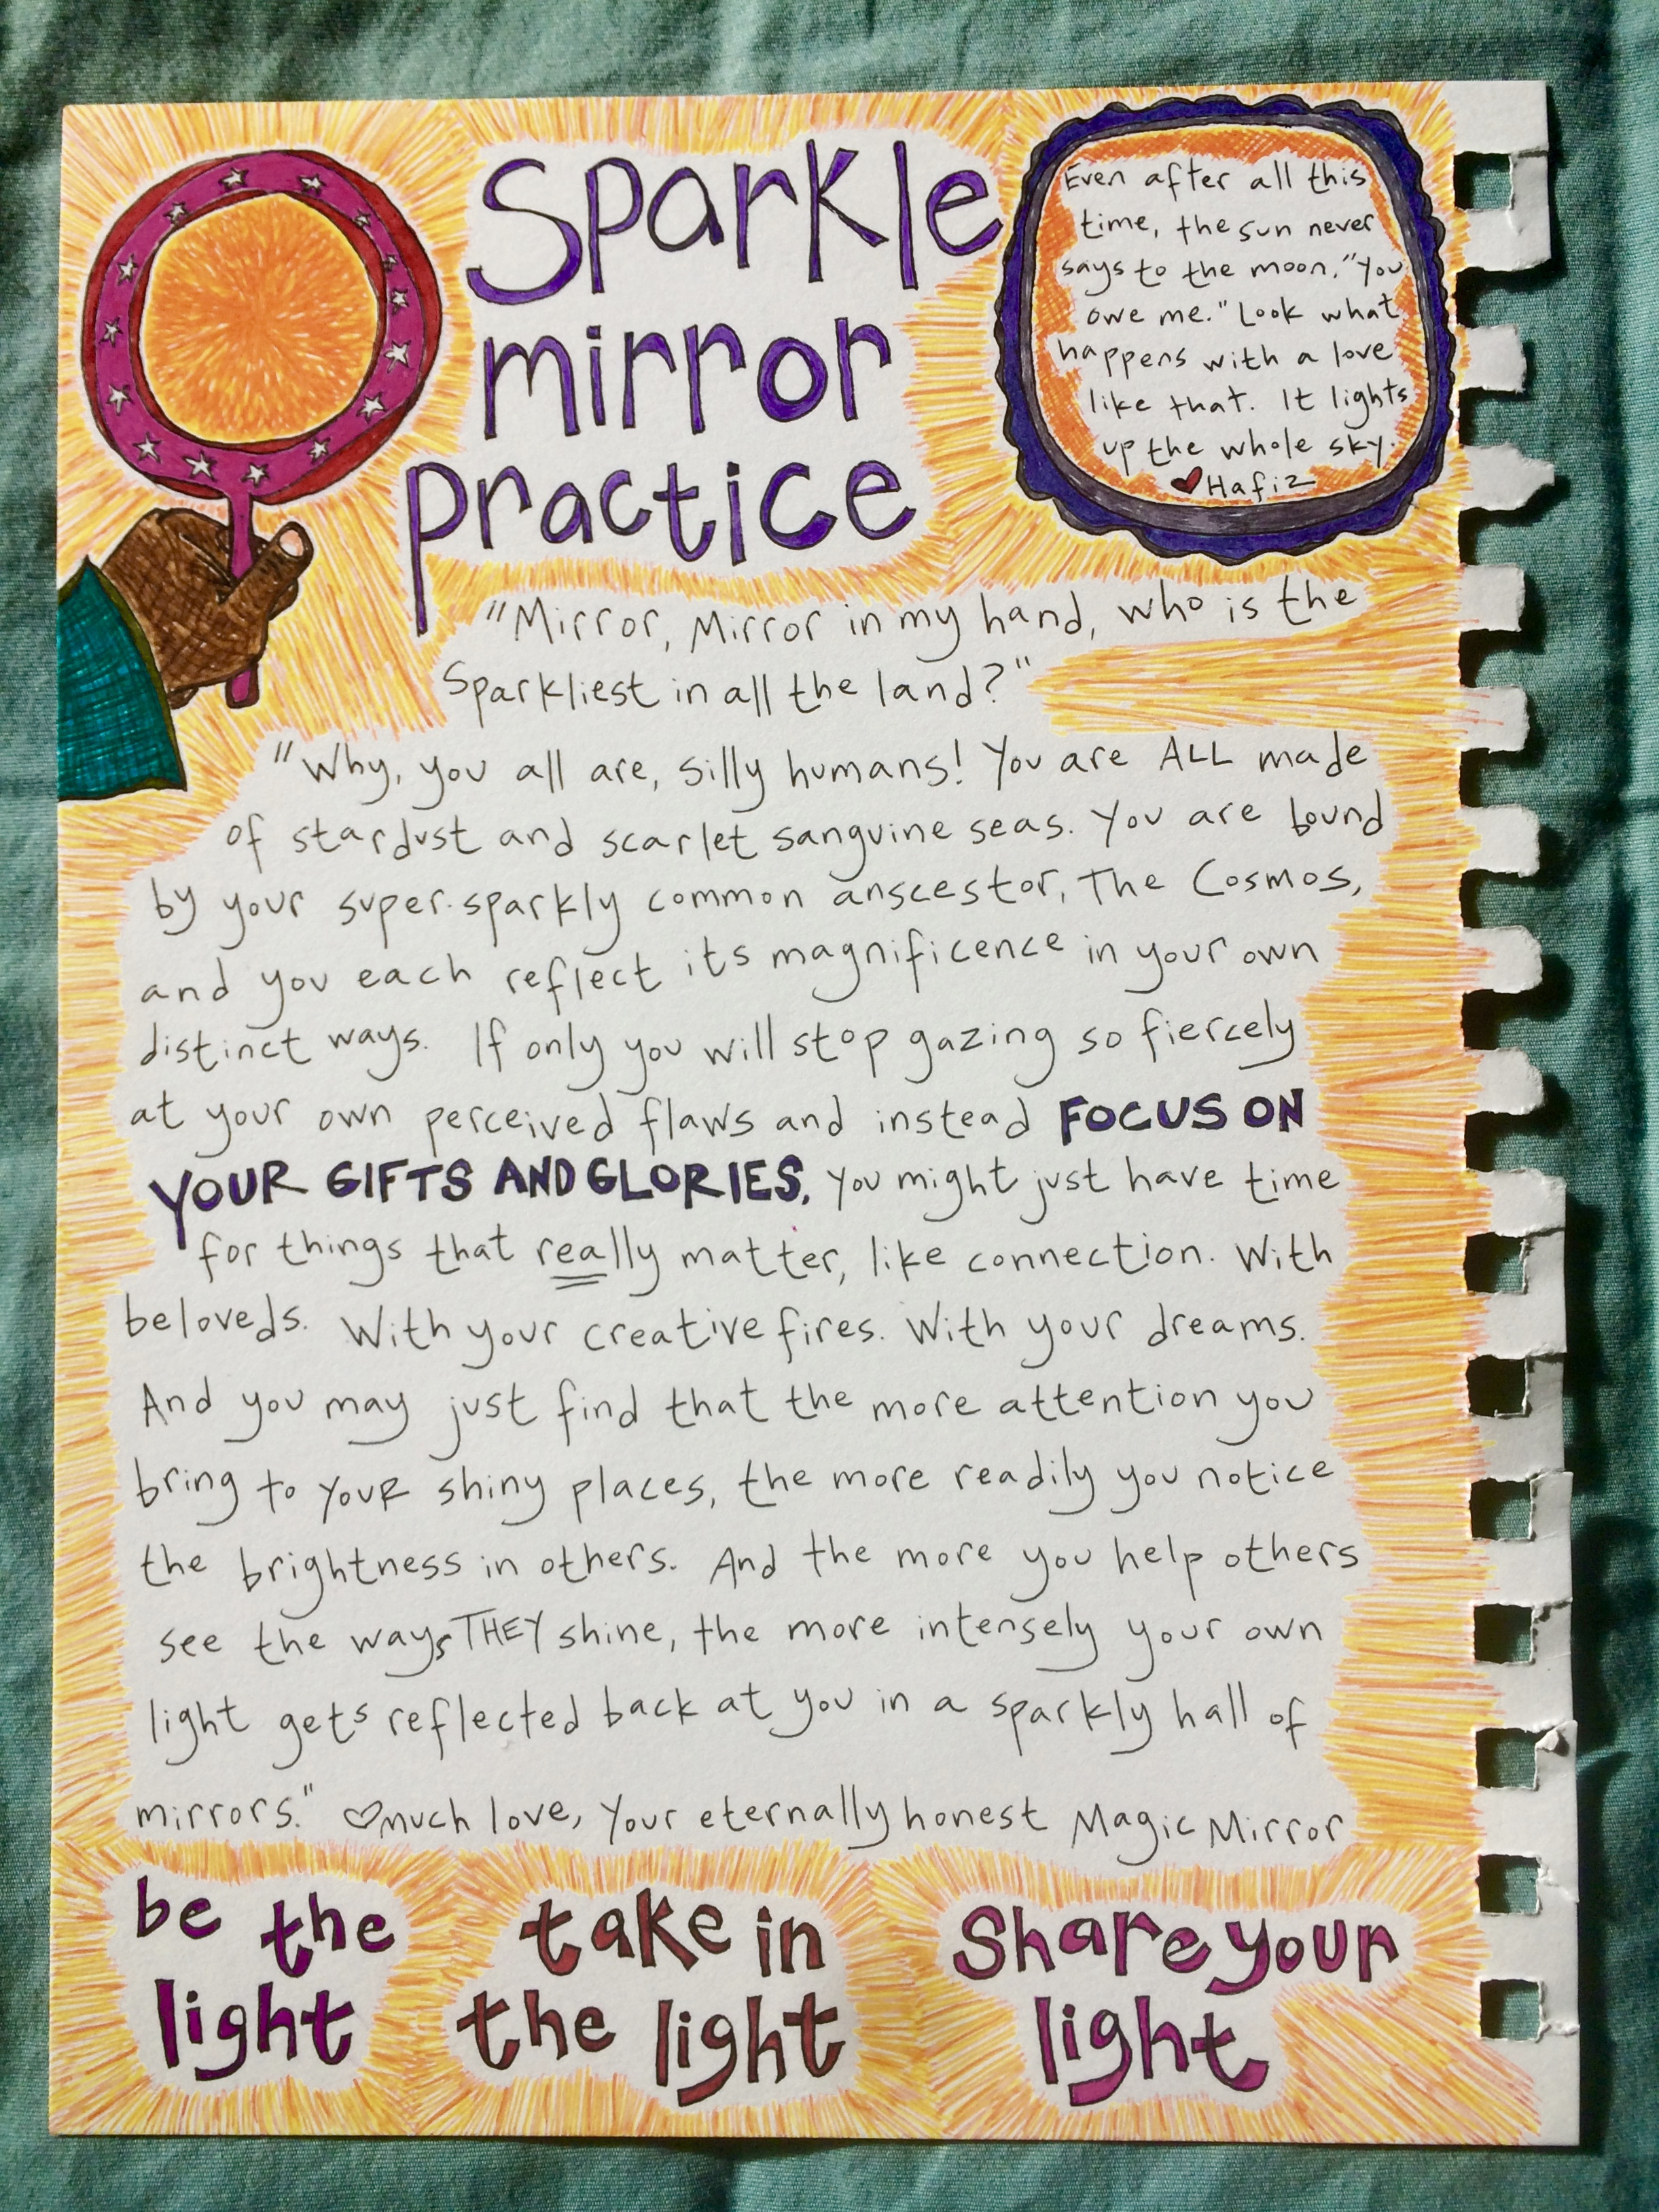 Sparkle
mirror
practice
Even after all this
time, the sun never
says to the moon, "You
owe me." Look what
happens with a love
like that. It lights
up the whole sky.
♥ Hafiz
"Mirror, Mirror in my hand, who is the
Sparkliest in all the land?"
"Why, you all are, silly humans! You are ALL made
of stardust and scarlet sanguine seas. You are bound
by your super-sparkly common anscestor, The Cosmos,
and you each reflect its magnificence in your own
distinct ways. If only you will stop gazing so fiercely
at your own perceived flaws and instead FOCUS ON
YOUR GIFTS AND GLORIES, you might just have time
for things that really matter, like connection. With
beloveds. With your creative fires. With your dreams.
And you may just find that the more attention you
bring to YOUR shiny places, the more readily you notice
the brightness in others. And the more you help others
see the ways THEY shine, the more intensely your own
light gets reflected back at you in a sparkly hall of
mirrors." ♡ much love, Your eternally honest Magic Mirror
be the
light
take in
the light
Share your
light